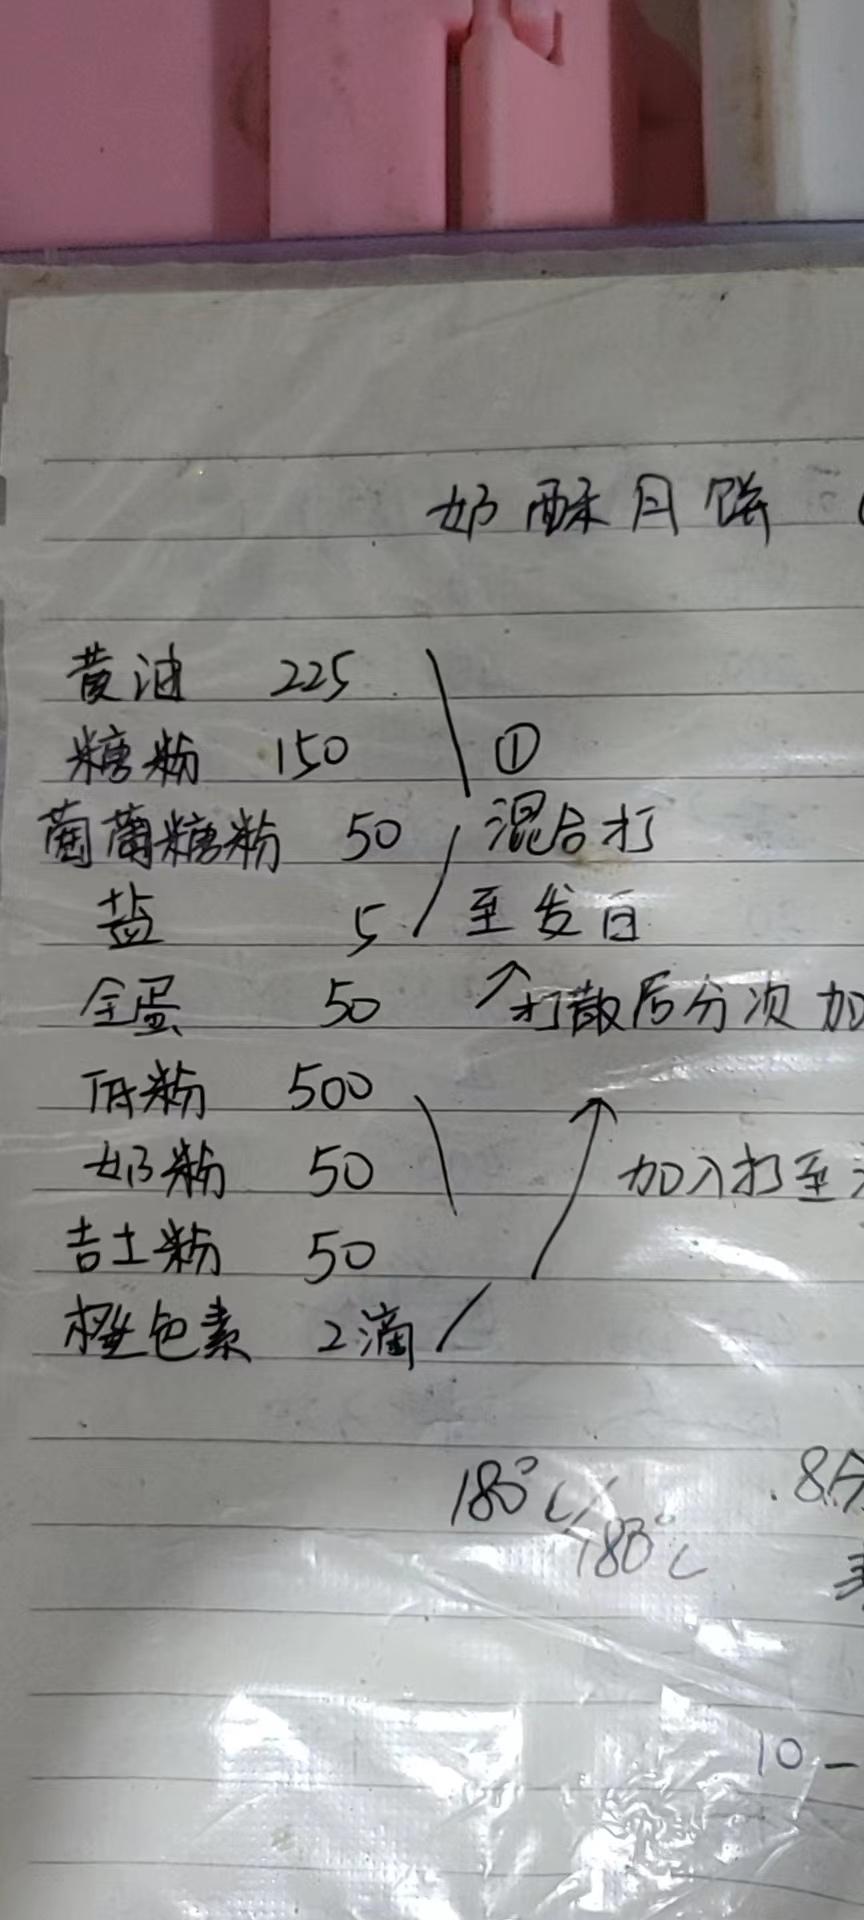 奶酥月饼
黄油 225
糖粉 150 ①
葡萄糖粉 50 混合打
盐 5 至发白
全蛋 50 打散后分次加
低粉 500
奶粉 50 加入打至
吉士粉 50
橙色素 2滴
180℃/180℃ 8分
10-